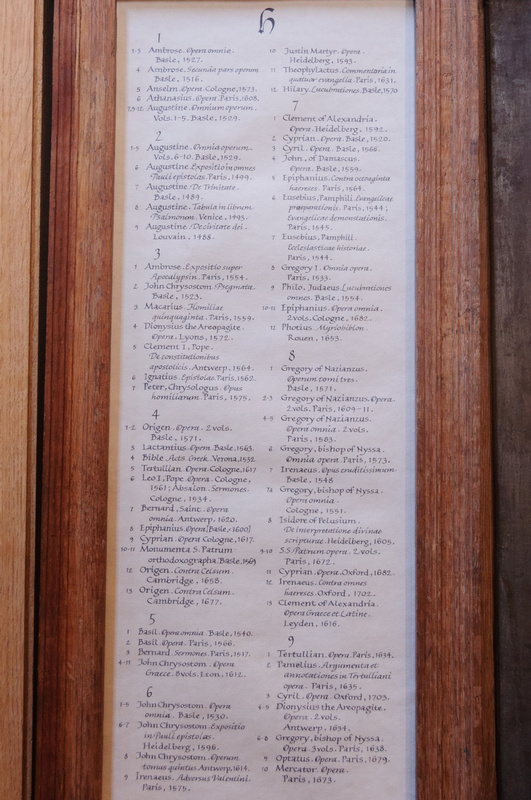 h
1
1-3 Ambrose. Opera omnia.
Basle, 1527.
4 Ambrose. Secunda pars operum
Basle, 1516.
5 Anselm. Opera. Cologne, 1573.
6 Athanasius. Opera. Paris, 1608.
7,8-12 Augustine. Omnium operum.
Vols. 1-5. Basle, 1529.
2
1-5 Augustine. Omnia operum.
Vols. 6-10. Basle, 1529.
6 Augustine. Expositio in omnes
Pauli epistolas. Paris, 1499.
7 Augustine. De Trinitate.
Basle, 1489.
8 Augustine. Tabula in librum
Psalmorum. Venice, 1493.
9 Augustine. De civitate dei.
Louvain, 1488.
3
1 Ambrose. Expositio super
Apocalypsin. Paris, 1554.
2 John Chrysostom. Psegmata.
Basle, 1523.
3 Macarius. Homiliae
quinquaginta. Paris, 1559.
4 Dionysius the Areopagite.
Opera. Lyons, 1572.
5 Clement I, Pope.
De constitutionibus
apostolicis. Antwerp, 1564.
6 Ignatius. Epistolae. Paris, 1562.
7 Peter, Chrysologus. Opus
homiliarum. Paris, 1575.
4
1-2 Origen. Opera. 2 vols.
Basle, 1571.
3 Lactantius. Opera. Basle, 1563.
4 Bible. Acts. Greek. Verona, 1532
5 Tertullian. Opera. Cologne, 1617
6 Leo I, Pope. Opera. Cologne,
1561; Absalon. Sermones.
Cologne, 1534.
7 Bernard, Saint. Opera
omnia. Antwerp. 1620.
8 Epiphanius. Opera [Basle, 1600]
9 Cyprian. Opera. Cologne, 1617.
10-11 Monumenta S. Patrum
orthodoxographa. Basle, 1569
12 Origen. Contra Celsum.
Cambridge, 1658.
13 Origen. Contra Celsum.
Cambridge, 1677.
5
1 Basil. Opera omnia. Basle, 1540.
2 Basil. Opera. Paris, 1566.
3 Bernard. Sermones. Paris, 1517.
4-11 John Chrysostom. Opera
Graece. 8 vols. Eton, 1612.
6
1-5 John Chrysostom. Opera
omnia. Basle, 1530.
6-7 John Chrysostom. Expositio
in Pauli epistolas.
Heidelberg, 1596.
8 John Chrysostom. Operum
tomus quintus. Antwerp, 1614.
9 Irenaeus. Adversus Valentini.
Paris, 1575.
10 Justin Martyr. Opera.
Heidelberg, 1593.
11 Theophylactus. Commentaria in
quatuor evangelia. Paris, 1631.
12 Hilary. Lucubrationes. Basle, 1570
7
1 Clement of Alexandria.
Opera. Heidelberg, 1592.
2 Cyprian. Opera. Basle, 1520.
3 Cyril. Opera. Basle, 1566.
4 John, of Damascus.
Opera. Basle, 1559.
5 Epiphanius. Contra octoaginta
haereses. Paris, 1564.
6 Eusebius, Pamphili. Evangelicae
praeparationis. Paris, 1544;
Evangelicae demonstationis.
Paris, 1545.
7 Eusebius, Pamphili.
Ecclesiasticae historiae.
Paris, 1544.
8 Gregory I. Omnia opera.
Paris, 1533.
9 Philo, Judaeus. Lucubrationes
omnes. Basle, 1554.
10-11 Epiphanius. Opera omnia.
2 vols. Cologne, 1682.
12 Photius. Myriobiblon.
Rouen, 1653.
8
1 Gregory of Nazianzus.
Operum tomi tres.
Basle, 1571.
2-3 Gregory of Nazianzus. Opera.
2 vols. Paris, 1609-11.
4-5 Gregory of Nazianzus.
Opera omnia. 2 vols.
Paris, 1583.
6 Gregory, bishop of Nyssa.
Omnia opera. Paris, 1573.
7 Irenaeus. Opus eruditissimum.
Basle, 1548
7a Gregory, bishop of Nyssa.
Opera omnia.
Cologne, 1551.
8 Isidore of Pelusium.
De interpretatione divinae
scripturae. Heidelberg, 1605.
9-10 S.S. Patrum opera. 2 vols.
Paris, 1672.
11 Cyprian. Opera. Oxford, 1682.
12 Irenaeus. Contra omnes
haereses. Oxford, 1702.
13 Clement of Alexandria.
Opera Graece et Latine.
Leyden, 1616.
9
1 Tertullian. Opera. Paris, 1634.
2 Pamelius. Argumenta et
annotationes in Tertulliani
opera. Paris, 1635.
3 Cyril. Opera. Oxford, 1703.
4-5 Dionysius the Areopagite.
Opera. 2 vols.
Antwerp, 1634.
6-8 Gregory, bishop of Nyssa.
Opera. 3 vols. Paris, 1638.
9 Optatus. Opera. Paris, 1679.
10 Mercator. Opera.
Paris, 1673.